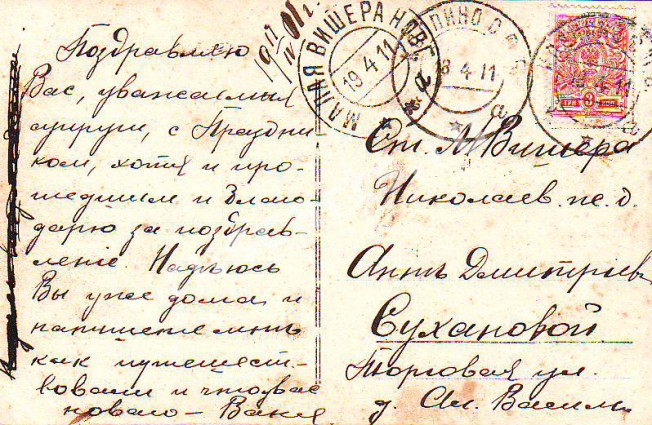 Поздравляю
Васъ, уважаемыя
супруги, с Праздни
ком, хотя и про-
шедшим и благо-
дарю за поздрав-
ленiе. Надѣюсь
Вы уже дома и
напишете мнѣ
как путешест-
вовали и что у вас
новаго — Ваня
МАЛАЯ ВИШЕРА НОВГ.
19 4 11
4 11
а
ТРИ 3 КОП
Ст. М. Вишера
Николаев. же. д.
Аннѣ Дмитрiев
Сухановой
Торговая ул.
д. Ал. Васил